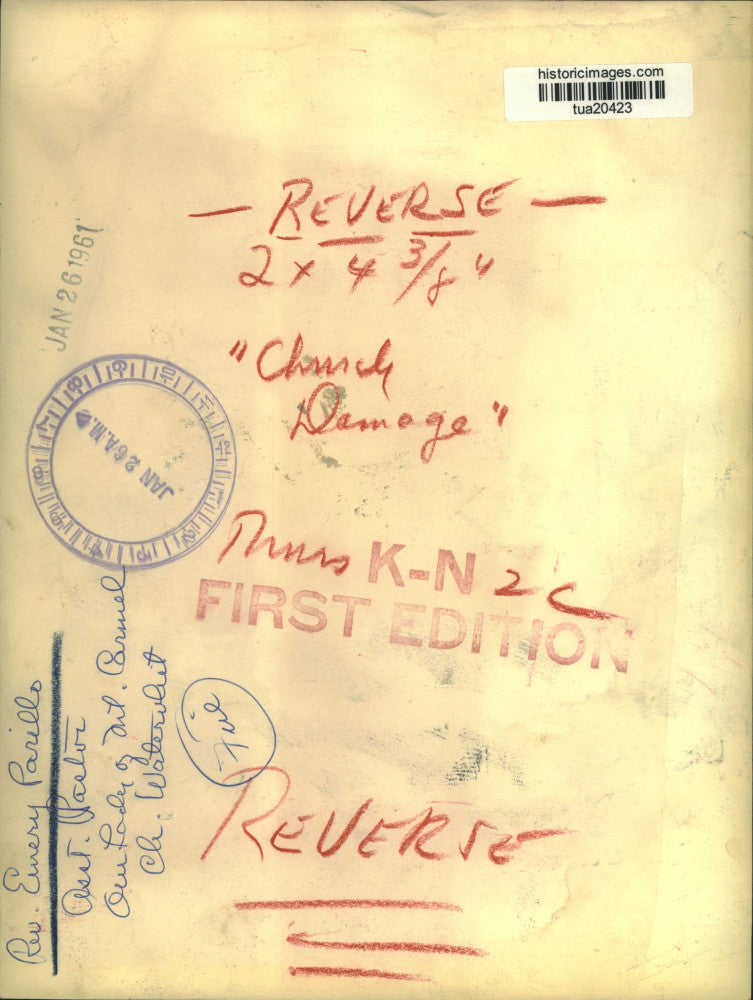 historicimages.com
tua20423
— REVERSE —
2 x 4 3/8"
"Church
Damage"
JAN 26 1961
JAN 26 A.M.
Thurs K-N 2C
FIRST EDITION
Rev. Emery Parillo
Asst. Pastor
Our Lady of Mt. Carmel
Ch. Watervliet
File
REVERSE